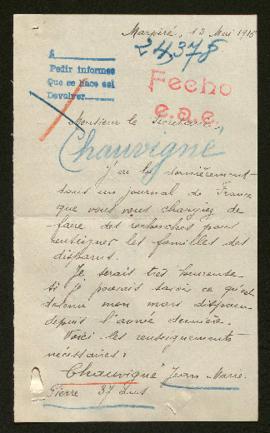 Marzéré, 13 Mai 1916
24,375
A
Pedir informes
Que se hace así
Devolver
Fecho
e.a.e.
Monsieur le Secrétaire,
Chauvigné
J'ai lu dernièrement
dans un journal de France
que vous vous chargiez de
faire des recherches pour
renseigner les familles des
disparus.
Je serais très heureuse
si je pouvais savoir ce qu'est
devenu mon mari disparu
depuis l'année dernière.
Voici les renseignements
nécessaires:
Chauvigné Jean Marie
Pierre 37 ans